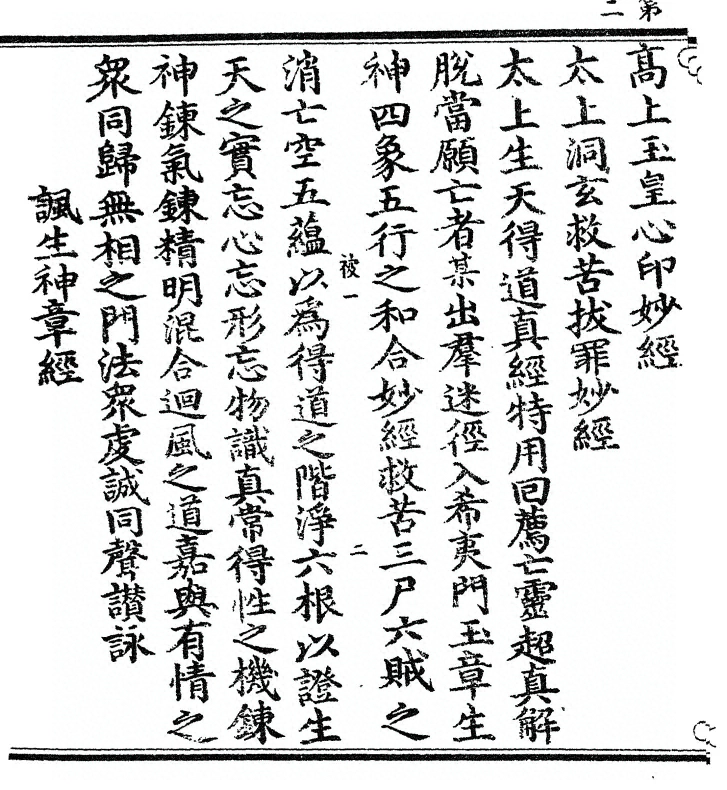 第二
高上玉皇心印妙經
太上洞玄救苦拔罪妙經
太上生天得道真經特用回薦亡靈超真解
脫當願亡者某出羣迷徑入希夷門玉章生
神四象五行之和合妙經救苦三尸六賊之
被一 二
消亡空五蘊以為得道之階淨六根以證生
天之實忘心忘形忘物識真常得性之機鍊
神鍊氣鍊精明混合迴風之道嘉與有情之
眾同歸無相之門法眾虔誠同聲讃詠
諷生神章經